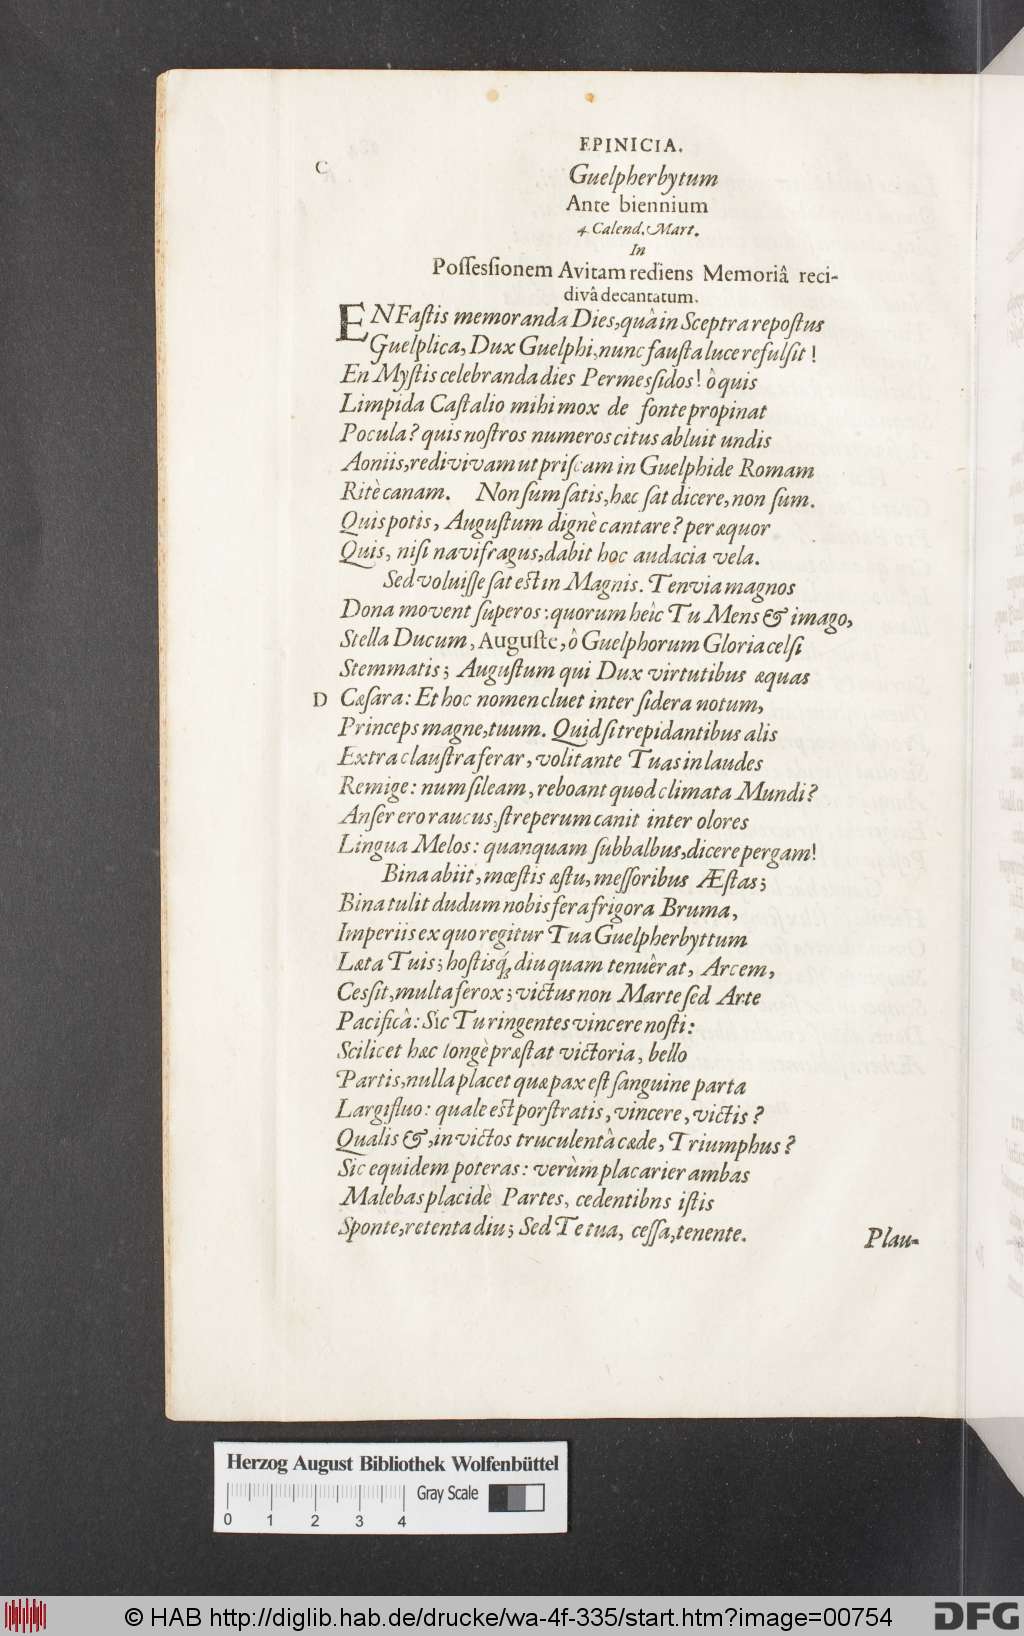 EPINICIA.
C
Guelpherbytum
Ante biennium
4. Calend. Mart.
In
Possessionem Avitam rediens Memoriâ reci-
divâ decantatum.
EN Fastis memoranda Dies, quâ in Sceptra repostus
Guelplica, Dux Guelphi, nunc fausta luce refulsit!
En Mystis celebranda dies Permessidos! ô quis
Limpida Castalio mihi mox de fonte propinat
Pocula? quis nostros numeros citus abluit undis
Aoniis, redivivam ut priscam in Guelphide Romam
Ritè canam. Non sum satis, hæc sat dicere, non sum.
Quis potis, Augustum dignè cantare? per æquor
Quis, nisi navifragus, dabit hoc audacia vela.
Sed voluisse sat est in Magnis. Tenvia magnos
Dona movent superos: quorum heîc Tu Mens & imago,
Stella Ducum, Auguste, ô Guelphorum Gloria celsi
Stemmatis; Augustum qui Dux virtutibus æquas
D Cæsara: Et hoc nomen cluet inter sidera notum,
Princeps magne, tuum. Quid si trepidantibus alis
Extra claustra ferar, volitante Tuas in laudes
Remige: num sileam, reboant quod climata Mundi?
Anser ero raucus, streperum canit inter olores
Lingua Melos: quanquam subbalbus, dicere pergam!
Bina abiit, mœstis æstu, messoribus Æstas;
Bina tulit dudum nobis fera frigora Bruma,
Imperiis ex quo regitur Tua Guelpherbyttum
Læta Tuis; hostisq́; diu quam tenuêrat, Arcem,
Cessit, multa ferox; victus non Marte sed Arte
Pacificâ: Sic Tu ringentes vincere nosti:
Scilicet hæc longè præstat victoria, bello
Partis, nulla placet quæ pax est sanguine parta
Largifluo: quale est porstratis, vincere, victis?
Qualis &, invictos truculentâ cæde, Triumphus?
Sic equidem poteras: verùm placarier ambas
Malebas placidè Partes, cedentibns istis
Sponte, retenta diu; Sed Te tua, cessa, tenente.
Plau-
Herzog August Bibliothek Wolfenbüttel
Gray Scale
0 1 2 3 4
© HAB http://diglib.hab.de/drucke/wa-4f-335/start.htm?image=00754
DFG